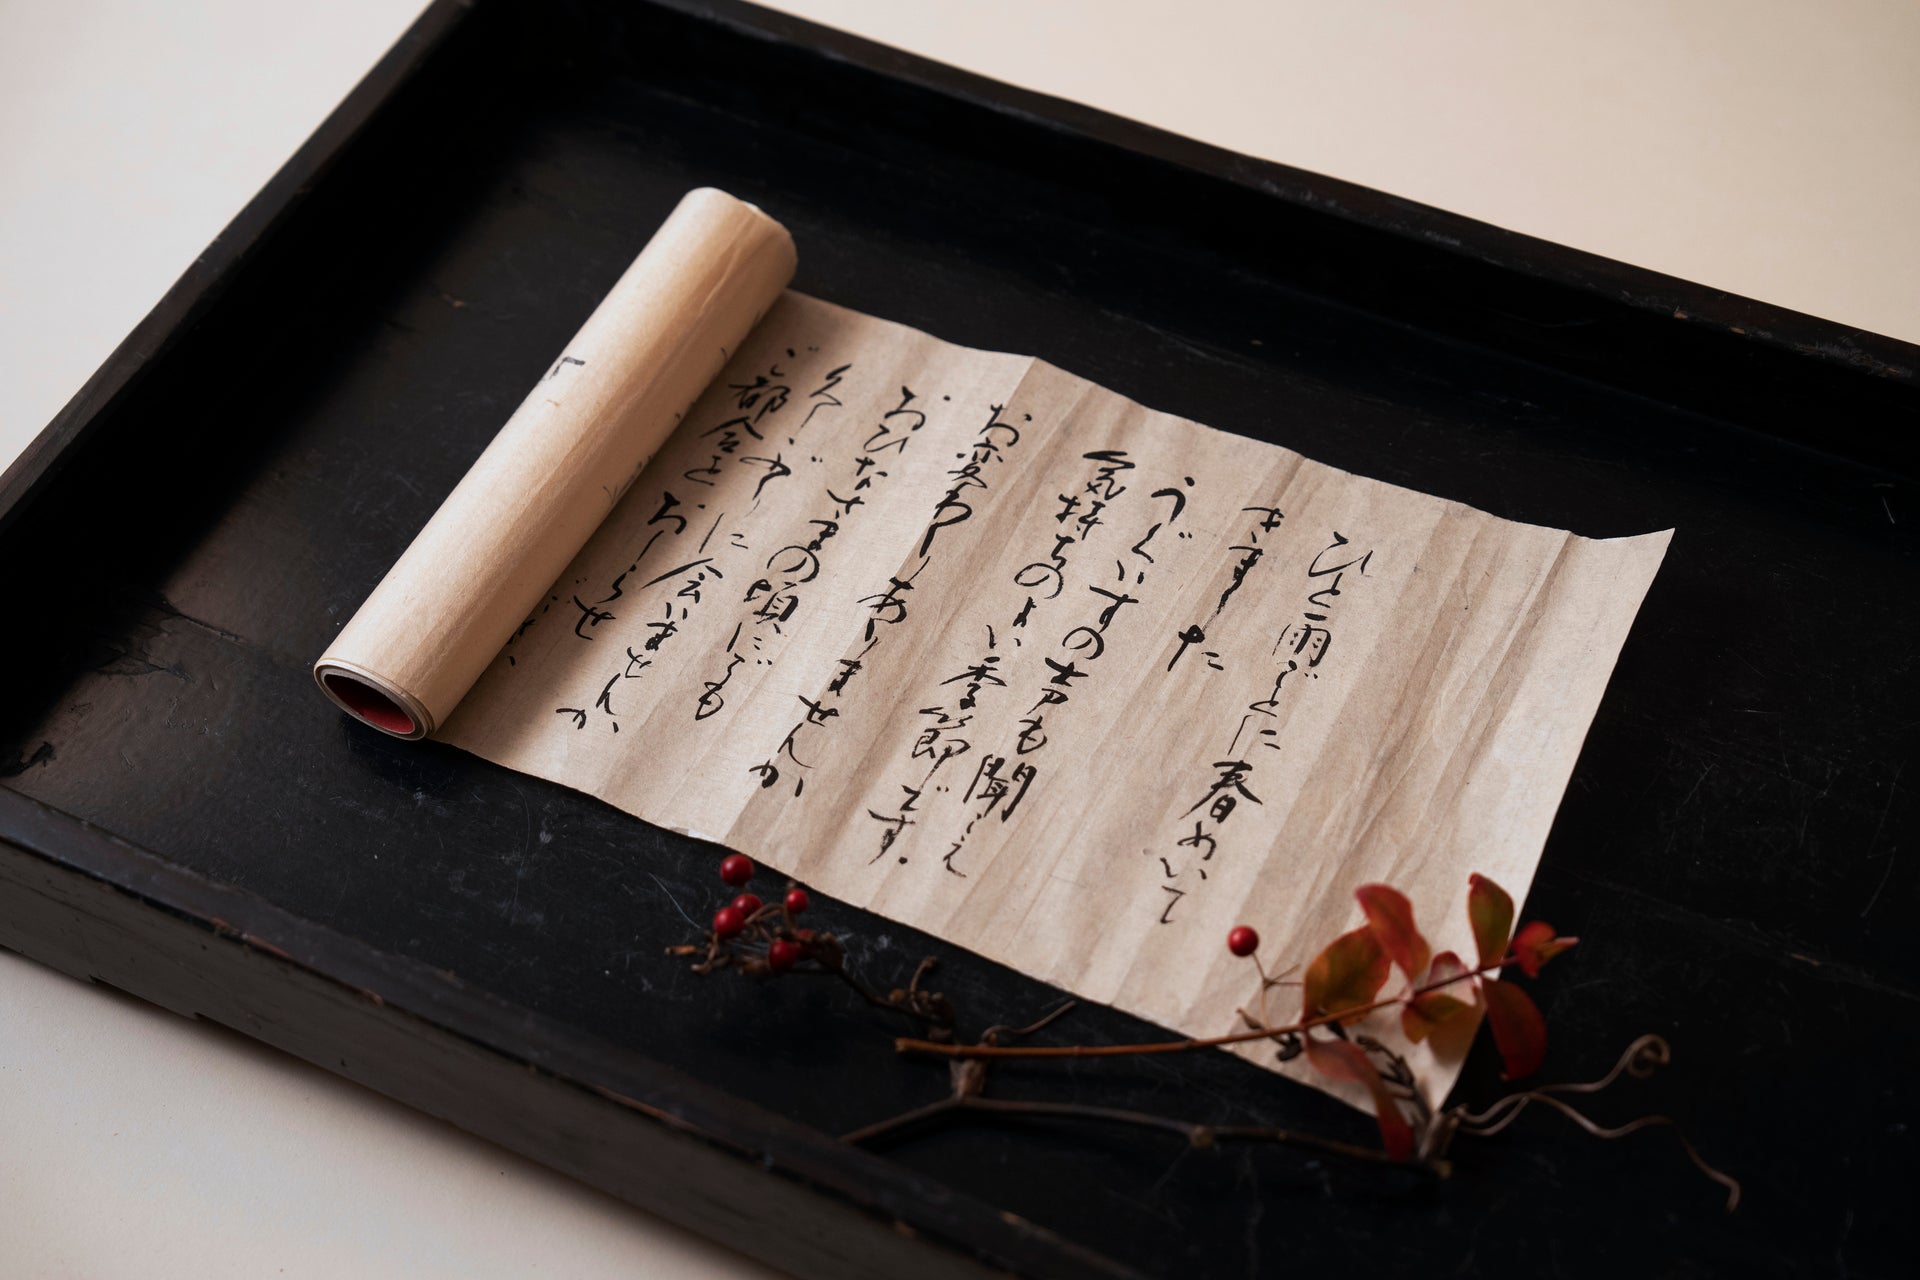 ひと雨ごとに春めいて
きました
うぐいすの声も聞こえ
気持ちのよい季節です。
お変わりありませんか
おひなさまの頃にでも
久しぶりに会いませんか
ご都合をおしらせ